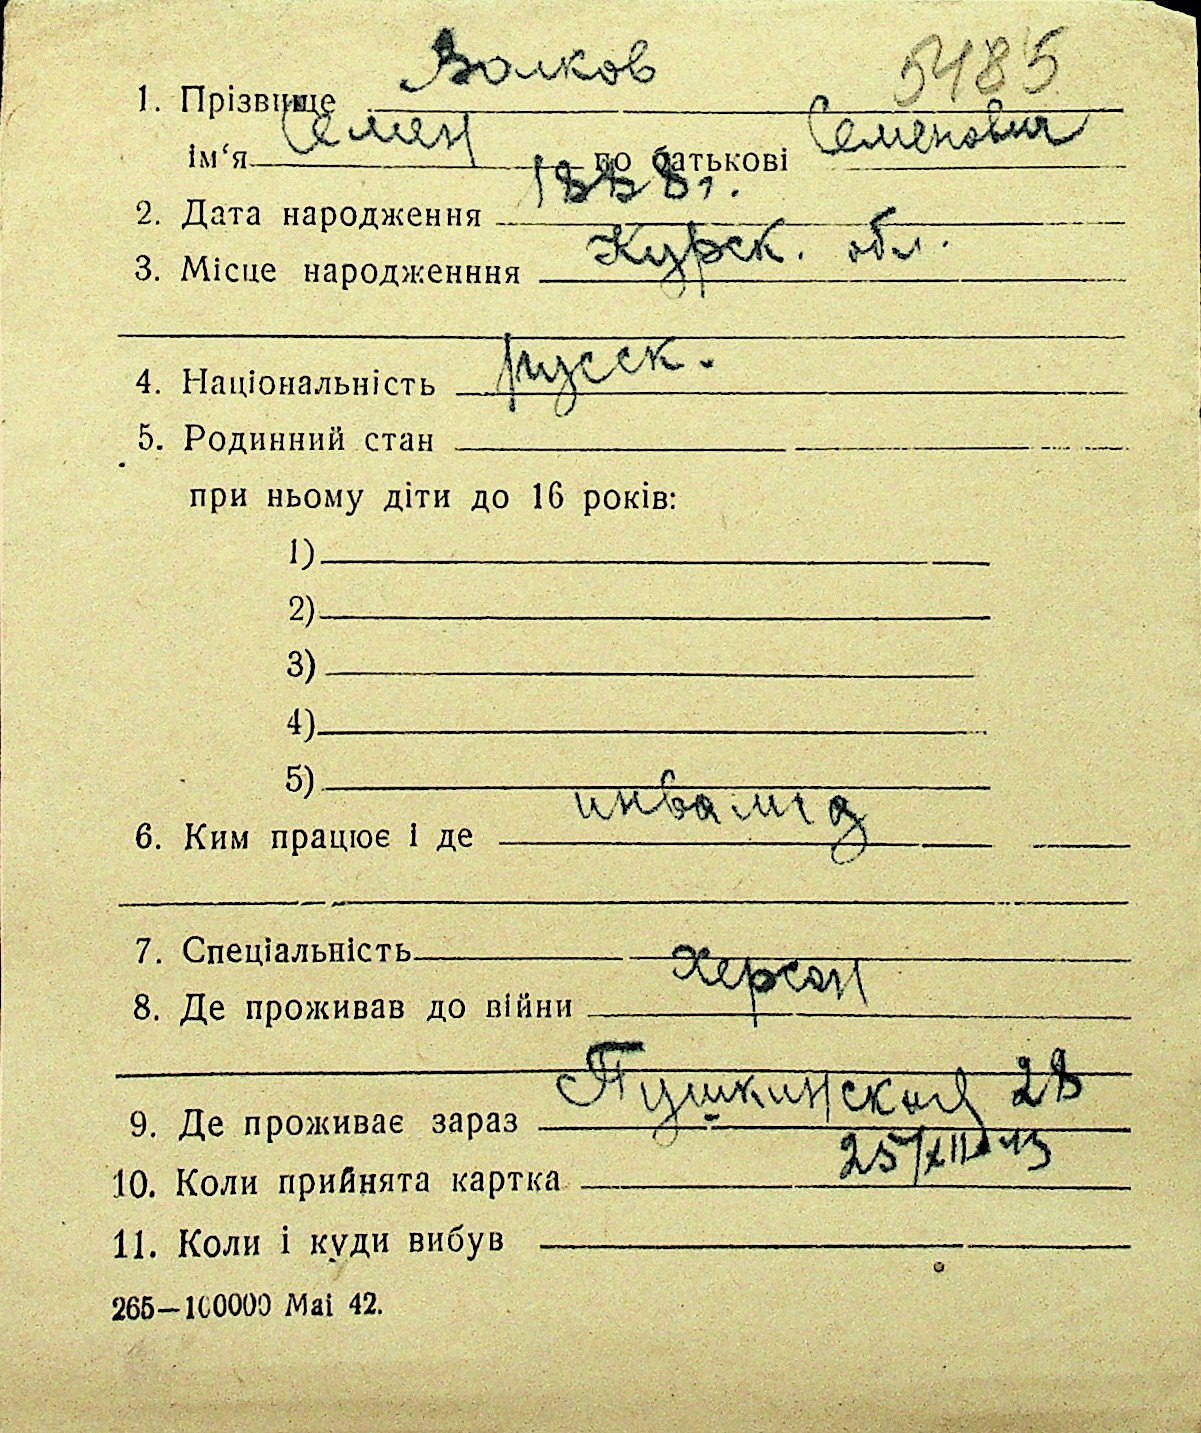 Волков 5485
1. Прізвище
Семен Семенович
ім‘я по батькові
1888 г.
2. Дата народження
Курск. обл.
3. Місце народженння
русск.
4. Національність
5. Родинний стан
при ньому діти до 16 років:
1)
2)
3)
4)
5)
инвалид
6. Ким працює і де
7. Спеціальність
Херсон
8. Де проживав до війни
Пушкинская 28
9. Де проживає зараз
25/XII 43
10. Коли прийнята картка
11. Коли і куди вибув
265—100000 Mai 42.